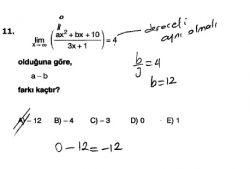 0
11. lim x→∞ (ax² + bx + 10 / 3x + 1) = 4 → dereceleri aynı olmalı
olduğuna göre,
a – b
farkı kaçtır?
b/3 = 4
b = 12
A) – 12 B) – 4 C) – 3 D) 0 E) 1
0 – 12 = –12